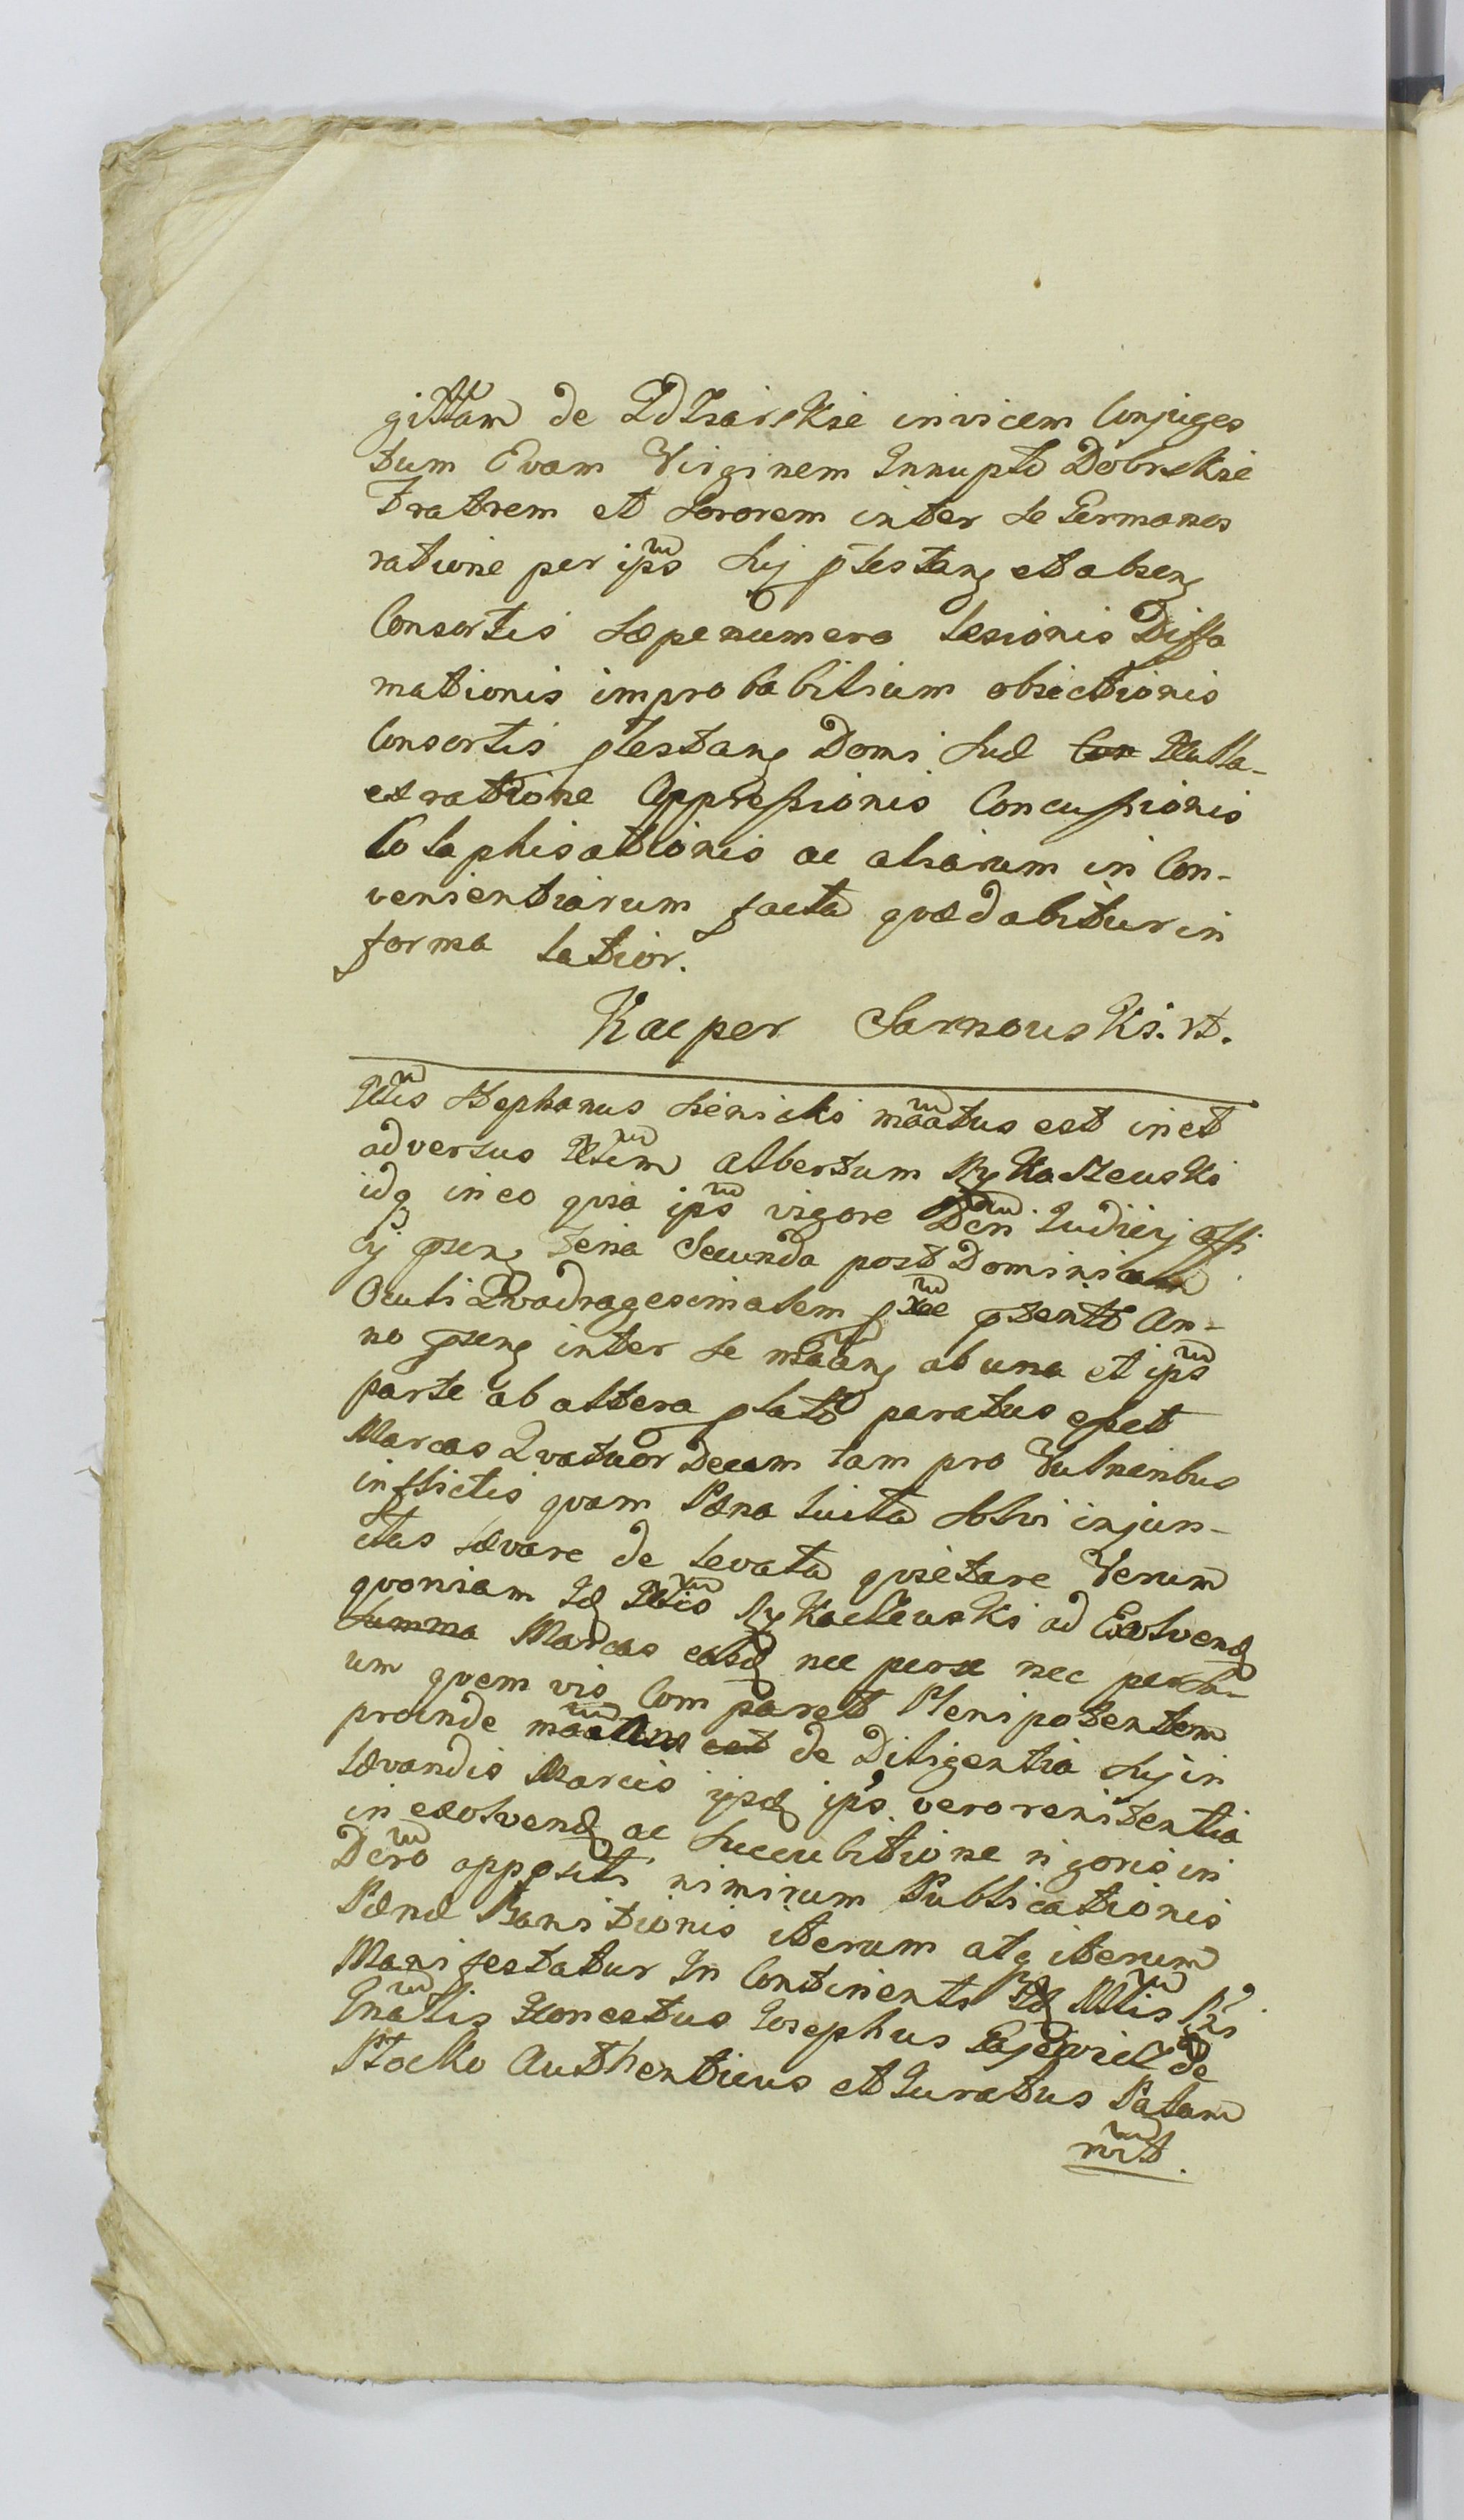 gittam de Zdziarskie invicem Conjuges
tum Evam Virginem Innupta Dobrskie
Fratrem et Sororem inter se Germanos
ratione per ips Sui pltestang et absen
Consortis Sæpenumero Lesionis Diffa
mationis improbabilium obiectionis
Consortis pltestang Domi Suæ
et ratione Oppressionis Concussionis
Colaphisationis ac aliarum in Con-
venientiarum facta quæ dabitur in
forma latior.
Kacper Sarnowski. rt.
Gtis Stephanus Sienicki maatus est in et
adversus Gtum Albertum Rykaczewski
idq in eo quia ips vigore Dcri Judicij offi
cij psen Feria Secunda post Dominicam
Oculi Quadragesimalem pxæ psenti An-
no psens inter se maang ab una et ips
parte ab altera plati paratus esset
Marcas Quatuor Decem tam pro Vulneribus
inflictis quam Pæna luita Solvi injun-
ctas Lævare de levata quietare Verum
quoniam Id Gtis Rykaczewski ad Exolvend
Summa Marcas easd nec per se nec per ali-
um quem vis Comparet Plenipotentem
proinde maatus est de Diligentia Sui in
Lævandis Marcis ijsd ips vero renitentia
in exolvend ac Succubitione rigoris in
Dcro appositi nimirum Publicationis
Pænæ Banitionis iterum atq iterum
Manifestatur In Continenti Id Mtis Rgs
Gnalis Honestus Josephus de
Płocko Authenticus et Juratus Palam
mrt.